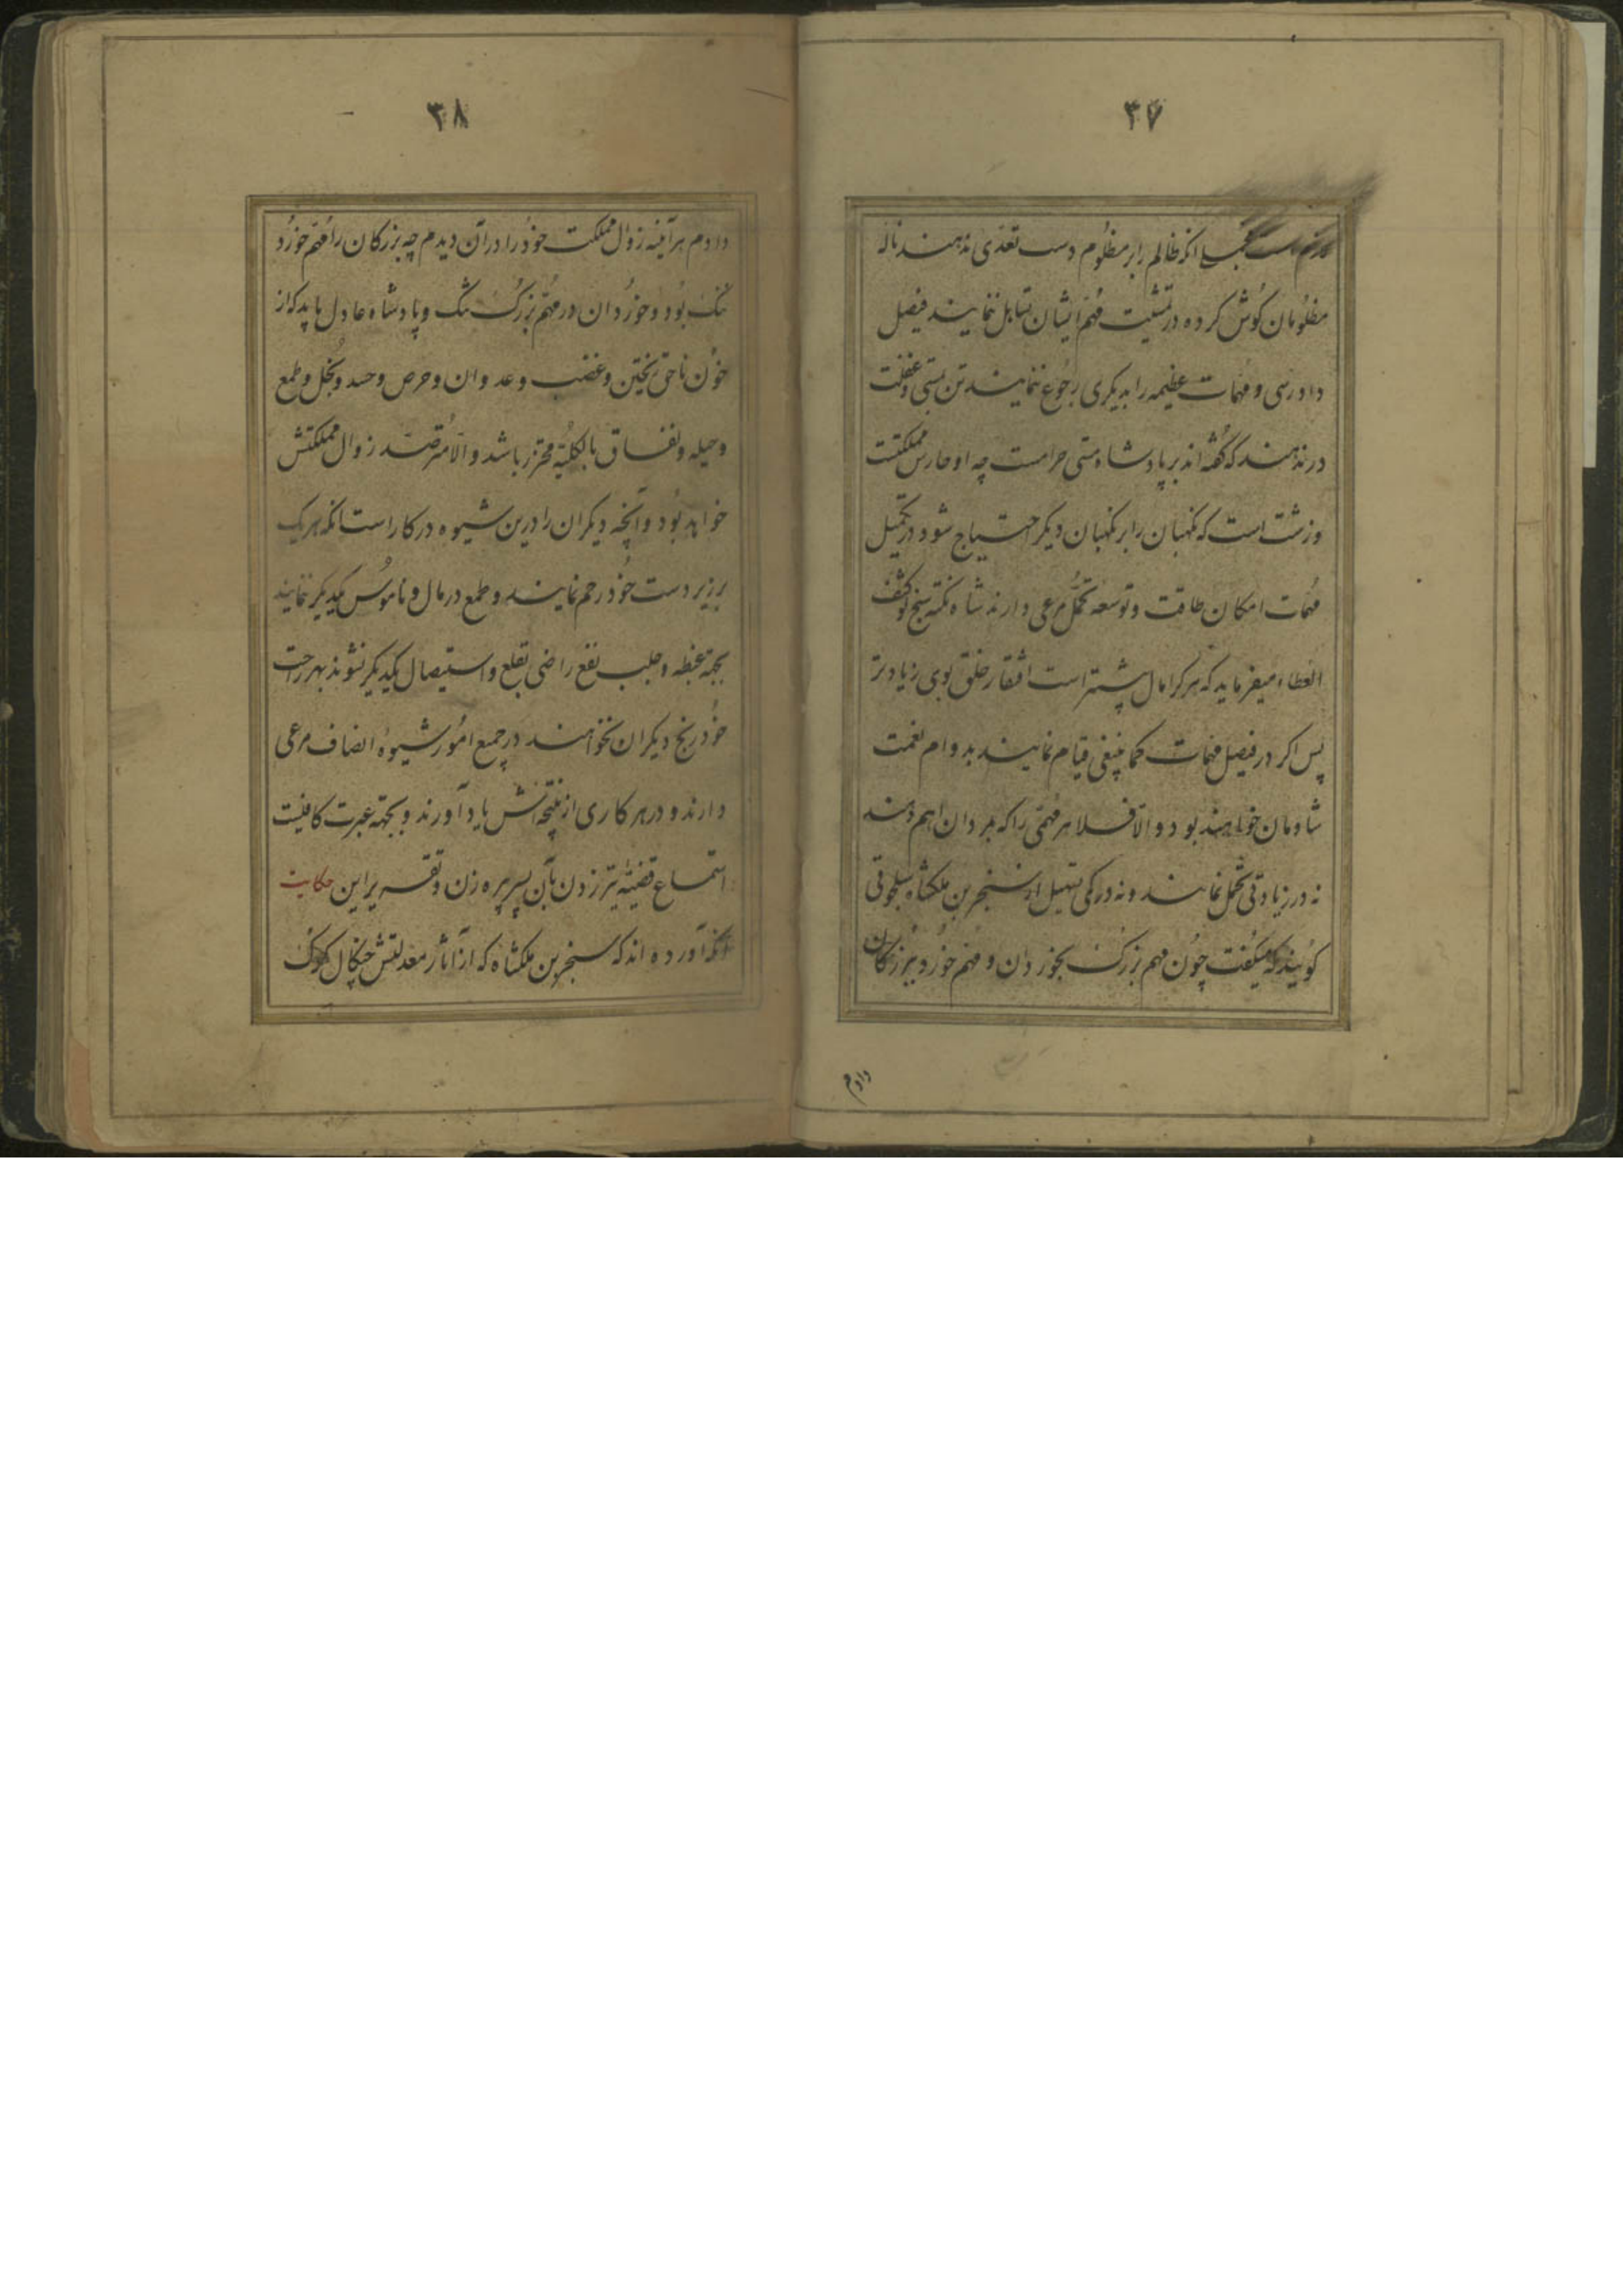 ۳۷
انکه ظالم را بر مظلوم دست تعدّی ندهند ناله
مظلومان کوش کرده در تمشیت مهم ایشان تساهل ننمایند فیصل
دادرسی و مهمات عظیمه را بدیکری رجوع ننمایند تن بمستی و غفلت
در ندهند که کفته اند بر پادشاه مستی حرامست چه او حارس مملکتست
و زشت است که نکهبان را بر نکهبان دیکر احتیاج شود و در تکمیل
مهمات امکان طاقت و توسعه تحمّل مرعی دارند شاه نکته سنج لو کشف
الغطاء میفرماید که هر کرا مال بیشتر است افتقار خلق بوی زیاد تر
پس اکر در فیصل مهمات کما ینبغی قیام نمایند بدوام نعمت
شادمان خواهند بود و الّا فلا هر مهمّی را که بمردان اهم دهند
نه در زیادتی تحمل نمایند و نه در کمی تسهیل از سنجر بن ملکشاه سلجوقی
کویند که میکفت چون مهم بزرک بخوردان و مهم خورد ببزرکان
دادم
۳۸
دادم هر آینه زوال مملکت خود را در آن دیدم چه بزرکان را مهم خورد
ننک بود و خوردان در مهم بزرک تنک و پادشاه عادل باید که از
خون ناحق ریختن و غضب و عدوان و حرص و حسد و بخل و طمع
و حیله و نفاق بالکلیّه محترز باشد و الّا مترصد زوال مملکتش
خواهد بود و آنچه دیکران را درین شیوه در کار است انکه هر یک
بر زیر دست خود رحم نمایند و طمع در مال و ناموس یکدیکر ننمایند
بجهة غبطه و جلب نفع راضی بقلع و استیصال یکدیکر نشوند بهر راحت
خود رنج دیکران نخواهند در جمیع امور شیوهٔ انصاف مرعی
دارند و در هر کاری از نتیجه اش یاد آورند و بجهة عبرت کافیست
استماع قضیّه تیر زدن بآن پسر پیره زن و تقریر این حکایت
آنکه آورده اند که سنجر بن ملکشاه که از آثار معدلتش چنکال